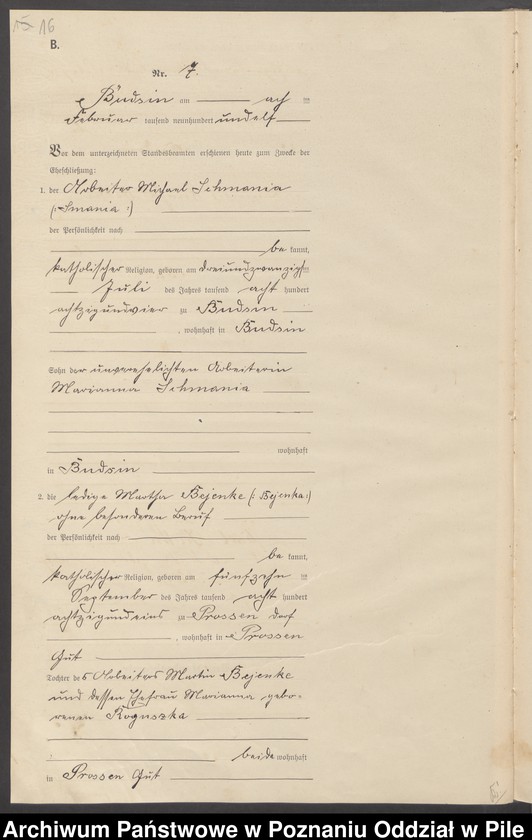 15 16
B.
Nr. 7.
Budsin am acht ten
Februar tausend neunhundert und elf
Vor dem unterzeichneten Standesbeamten erschienen heute zum Zwecke der
Eheschließung:
1. der Arbeiter Michael Schmania
(: Smania :)
der Persönlichkeit nach
be kannt,
katholischer Religion, geboren am dreiundzwanzigsten
Juli des Jahres tausend acht hundert
achtzigundvier zu Budsin
, wohnhaft in Budsin
Sohn der unverehelichten Arbeiterin
Marianna Schmania
wohnhaft
in Budsin
2. die ledige Martha Bejenke (: Bejenka :)
ohne besonderen Beruf
der Persönlichkeit nach
be kannt,
katholischer Religion, geboren am fünfzehn ten
September des Jahres tausend acht hundert
achtzigundeins zu Prossen Dorf
, wohnhaft in Prossen
Gut
Tochter des Arbeiters Martin Bejenke
und dessen Ehefrau Marianna gebo-
renen Roguszka
beide wohnhaft
in Prossen Gut
Archiwum Państwowe w Poznaniu Oddział w Pile